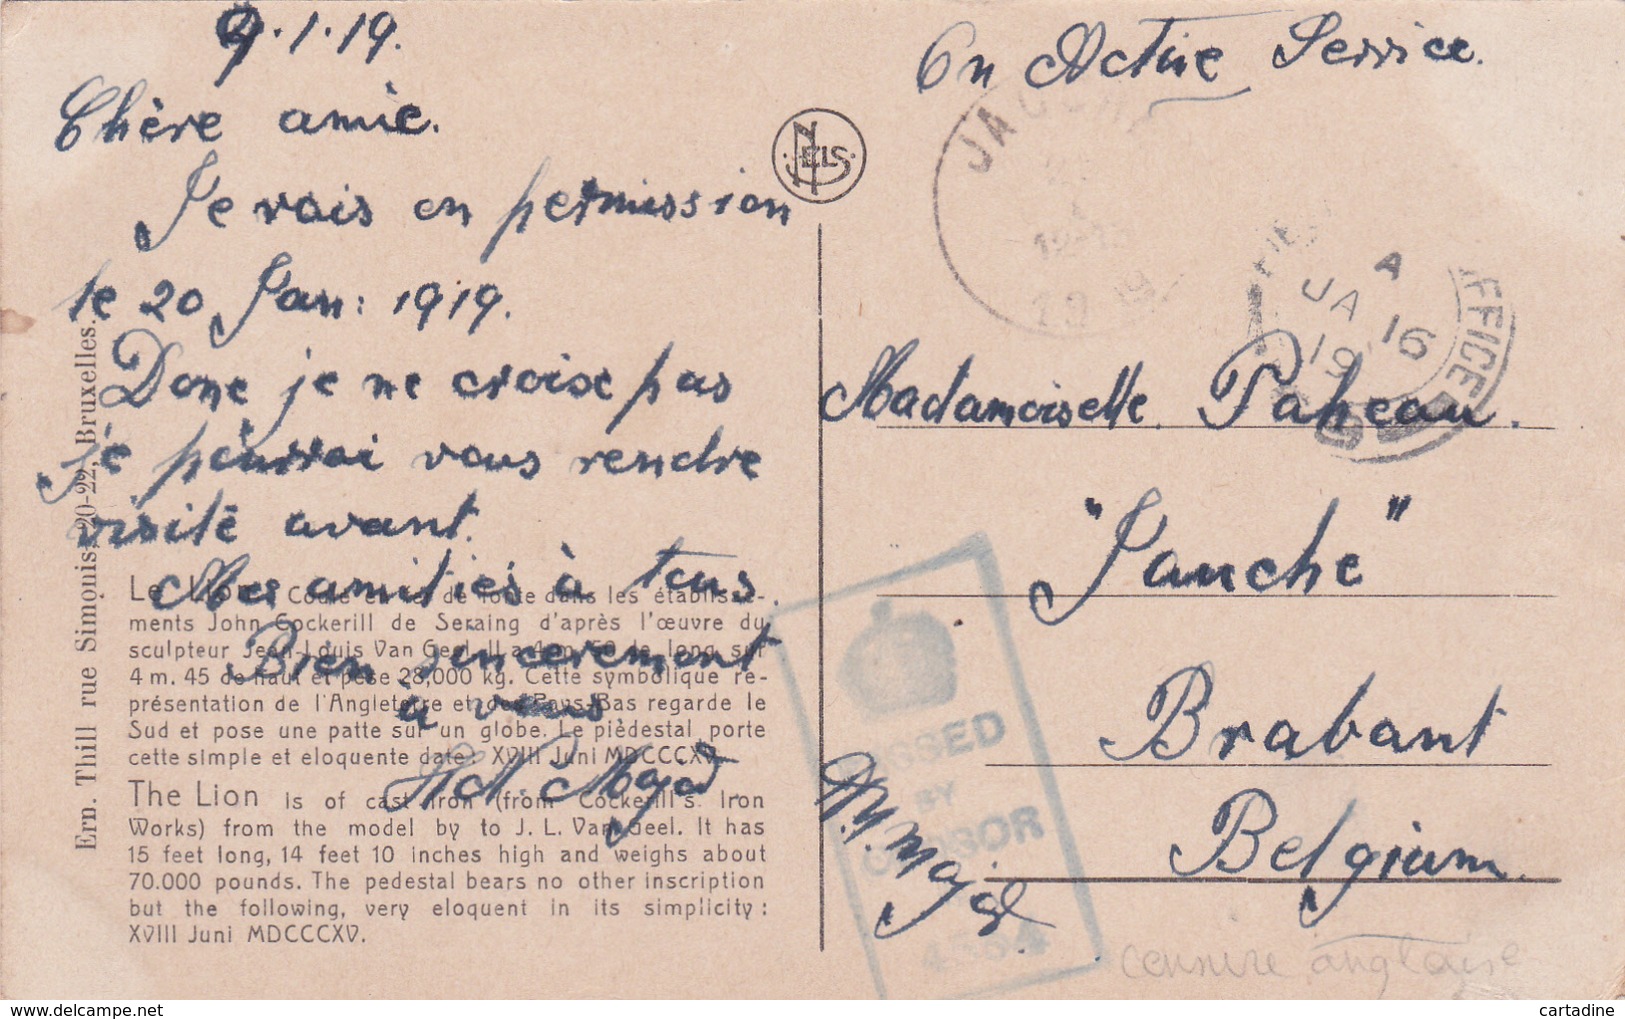 9.1.19.
Chère amie.
Je vais en permission
le 20 Jan: 1919.
Donc je ne croise pas
je pourrai vous rendre
visite avant.
Mes amitiés à tous.
Bien sincerement
à vous
On Active Service.
NELS
JA 16
19
A
OFFICE
Mademoiselle. Paheau.
"Jauche"
Brabant
Belgium.
PASSED
BY
CENSOR
censure anglaise
Ern. Thill rue Simonis, 20-22, Bruxelles.
Le Lion Coulé en fer de fonte dans les établisse-
ments John Cockerill de Seraing d'après l'œuvre du
sculpteur Jean-Louis Van Geel. Il a 4 m. 50 de long sur
4 m. 45 de haut et pèse 28,000 kg. Cette symbolique re-
présentation de l'Angleterre et des Pays-Bas regarde le
Sud et pose une patte sur un globe. Le pièdestal porte
cette simple et eloquente date: XVIII Juni MDCCCXV.
The Lion is of cast iron (from Cockerill's Iron
Works) from the model by to J. L. Van Geel. It has
15 feet long, 14 feet 10 inches high and weighs about
70.000 pounds. The pedestal bears no other inscription
but the following, very eloquent in its simplicity:
XVIII Juni MDCCCXV.
cartadine